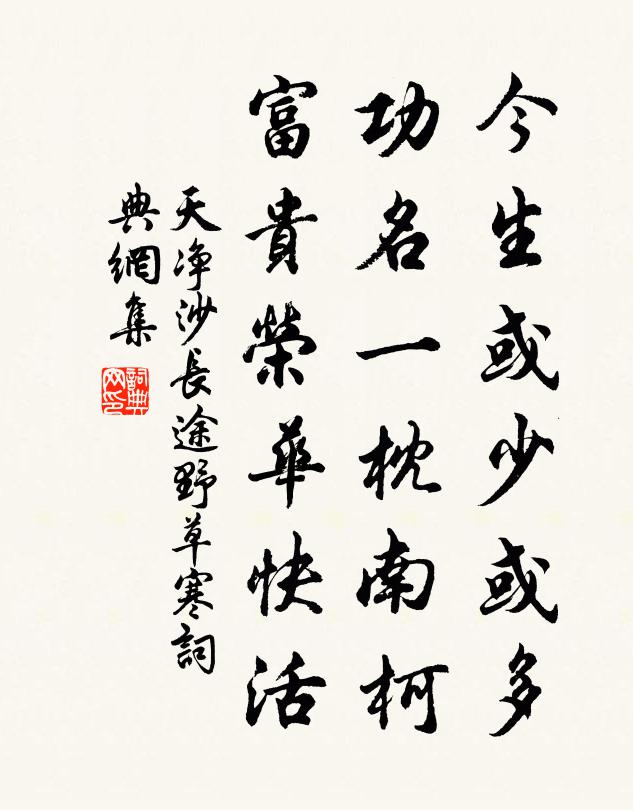 今生或少或多
功名一枕南柯
富貴榮華快活
天净沙長途野草寒詞
典網集
詞典網印